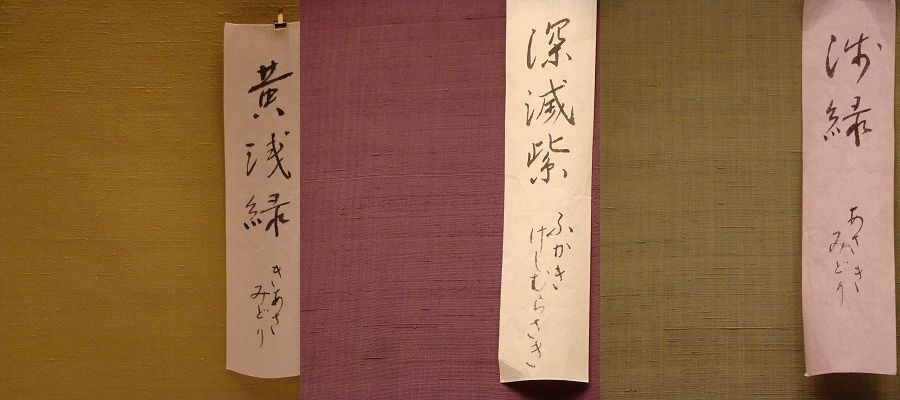 黄浅緑
きあさ
みどり
深滅紫
ふかき
けしむらさき
浅緑
あさき
みどり